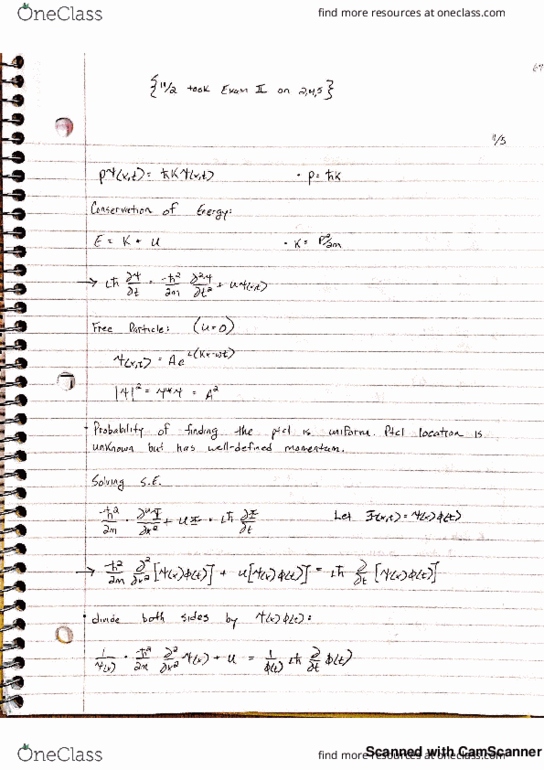 OneClass
find more resources at oneclass.com
{11/2 took Exam II on 2,4,5}
11/5
pΨ(x,t) = ħKΨ(x,t) · p = ħK
Conservation of Energy:
E = K + U · K = p²/2m
→ iħ ∂Ψ/∂t = -ħ²/2m ∂²Ψ/∂t² + UΨ(x,t)
Free Particle: (U=0)
Ψ(x,t) = Ae^i(Kx-wt)
|Ψ|² = Ψ*Ψ = A²
· Probability of finding the ptcl is uniform. Ptcl location is
unknown but has well-defined momentum.
Solving S.E.
-ħ²/2m · ∂²Ψ/∂x² + UΨ = iħ ∂Ψ/∂t Let Ψ(x,t) = ψ(x)ϕ(t)
→ -ħ²/2m ∂²/∂x² [ψ(x)ϕ(t)] + U[ψ(x)ϕ(t)] = iħ ∂/∂t [ψ(x)ϕ(t)]
· divide both sides by ψ(x)ϕ(t):
1/ψ(x) · -ħ²/2m · ∂²/∂x² ψ(x) + U = 1/ϕ(t) iħ ∂/∂t ϕ(t)
OneClass
find more resources at oneclass.com
Scanned with CamScanner